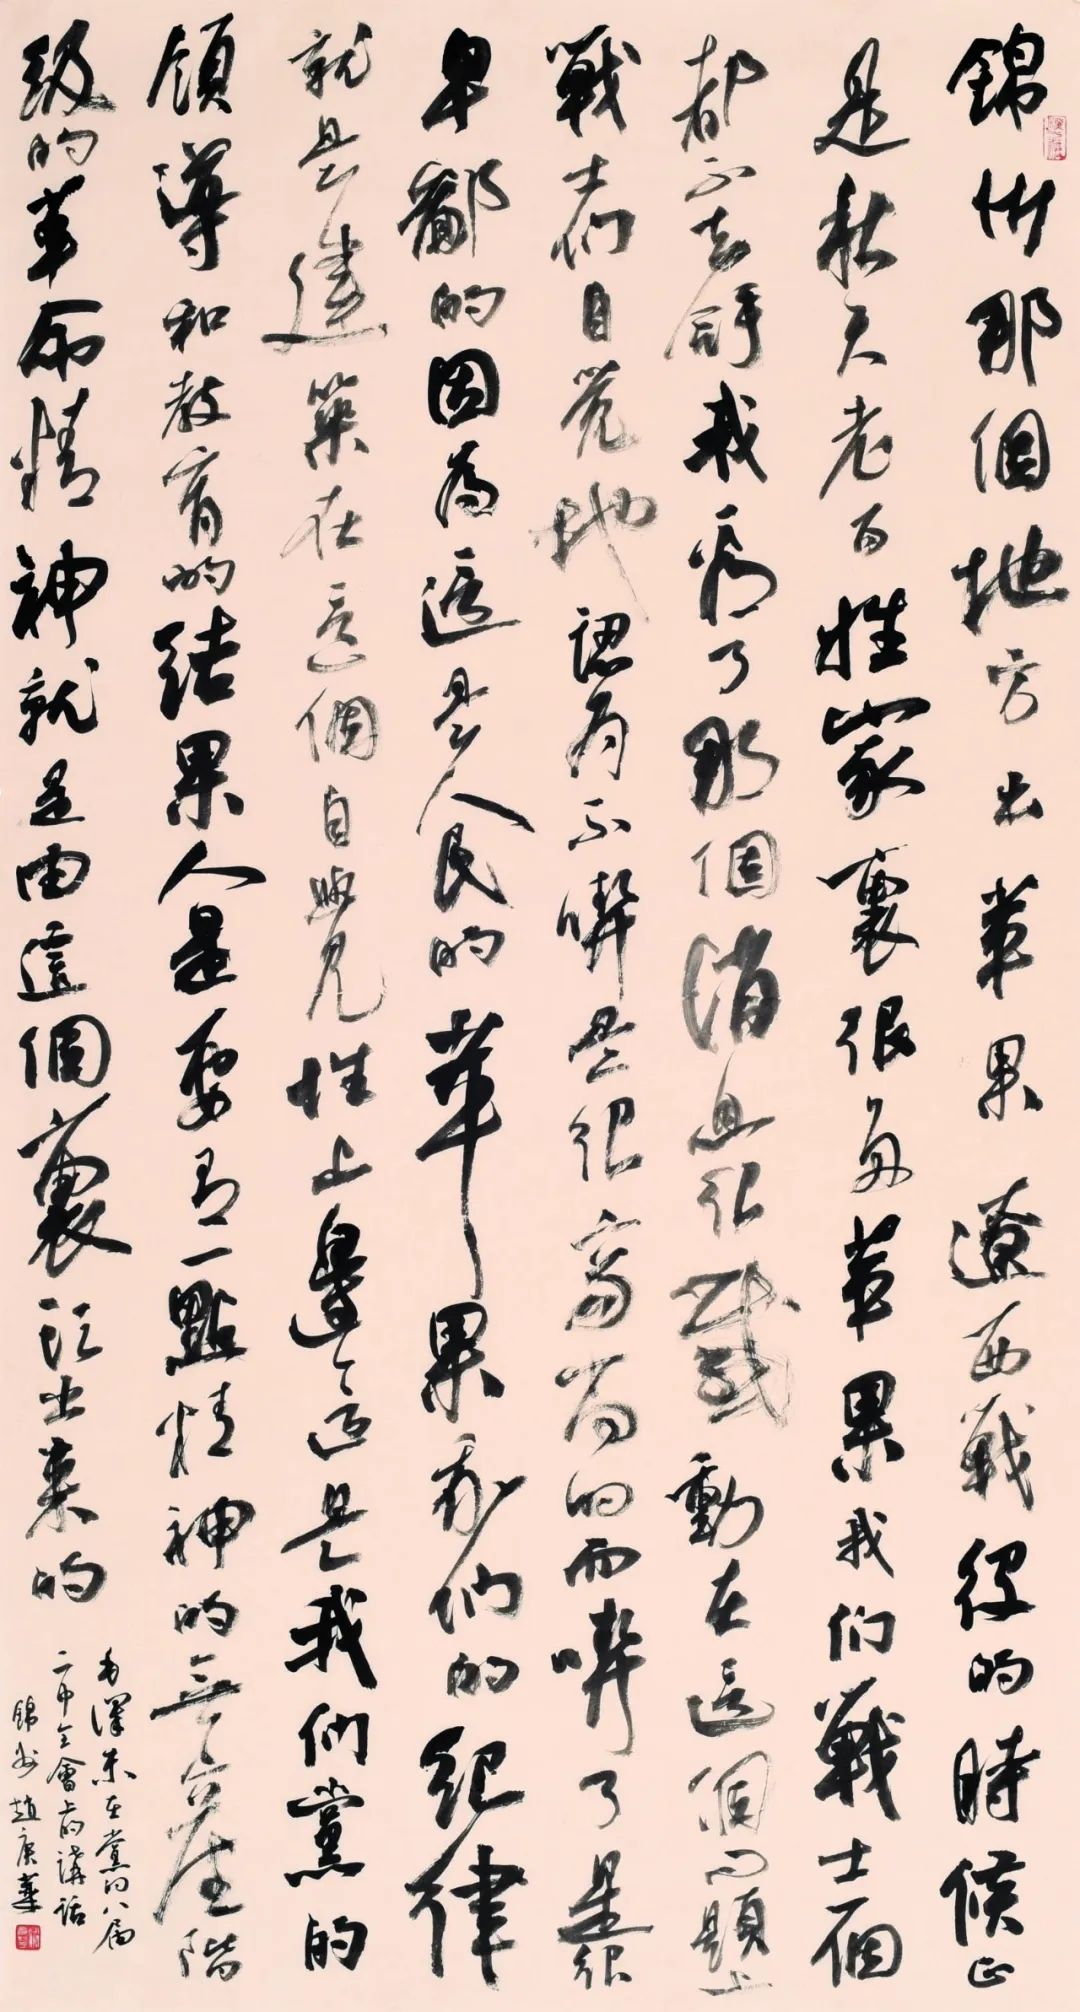 錦州那個地方出苹果遼西戰役的時候正
是秋天老百姓家裏很多苹果我们戰士一個
都不去拿我看了那個消息很感動在這個問題上
戰士们自覺地認為不喫是很高尚的而喫了是很
卑鄙的因為這是人民的苹果我们的紀律
就是建築在這個自覺性上邊這是我们黨的
領導和教育的结果人是要有一點精神的無產階
级的革命精神就是由這個裏頭出來的
毛澤東在黨的八届
二中全會上的講話
錦州趙